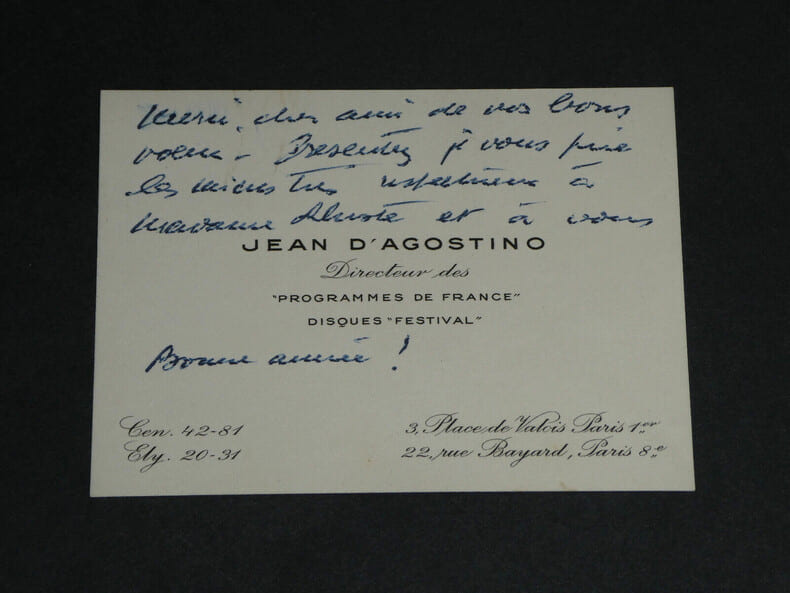 Merci, cher ami de vos bons
voeux - Presentez je vous prie
les miens très respectueux à
Madame et à vous
JEAN D'AGOSTINO
Directeur des
"PROGRAMMES DE FRANCE"
DISQUES "FESTIVAL"
Bonne année !
Cen. 42-81
Ely. 20-31
3, Place de Valois Paris 1er
22, rue Bayard, Paris 8e